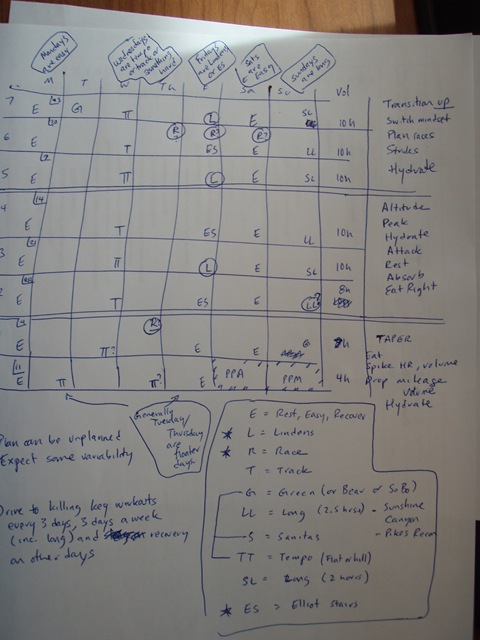 Mondays are easy
Wednesdays are tempo or track or something hard
Fridays are Lindens or ES
Sats are Easy
Sundays are long
M T W Th F Sa Su Vol
7 E 23 G TT L E SL 10h
6 30 R? R? R?
E T ES E LL 10h
5 E 7 TT L E SL 10h
4 E 14 T ES E LL 10h
3 E 21 TT L E SL 10h
2 E 28 T ES E LL? 8h
E 4 R TT? E E G 8h
E 11 TT TT? E PPA PPM 4h
Transition up
Switch mindset
Plan races
Strides
Hydrate
Altitude
Peak
Hydrate
Attack
Rest
Absorb
Eat Right
TAPER
Eat
Spike HR, volume
Drop mileage
volume
Hydrate
Generally Tuesday/Thursday are floater days
Plan can be unplanned
Expect some variability
Drive to killing key workouts
every 3 days, 3 days a week
(inc. long) and recovery
on other days
E = Rest, Easy, Recover
* L = Lindens
* R = Race
T = Track
G = Green (or Bear or SoBo)
LL = Long (2.5 hrs) - Sunshine Canyon
S = Sanitas - Pikes Recon
TT = Tempo (Flat or hill)
SL = Long (2 hours)
* ES = Elliot Stairs